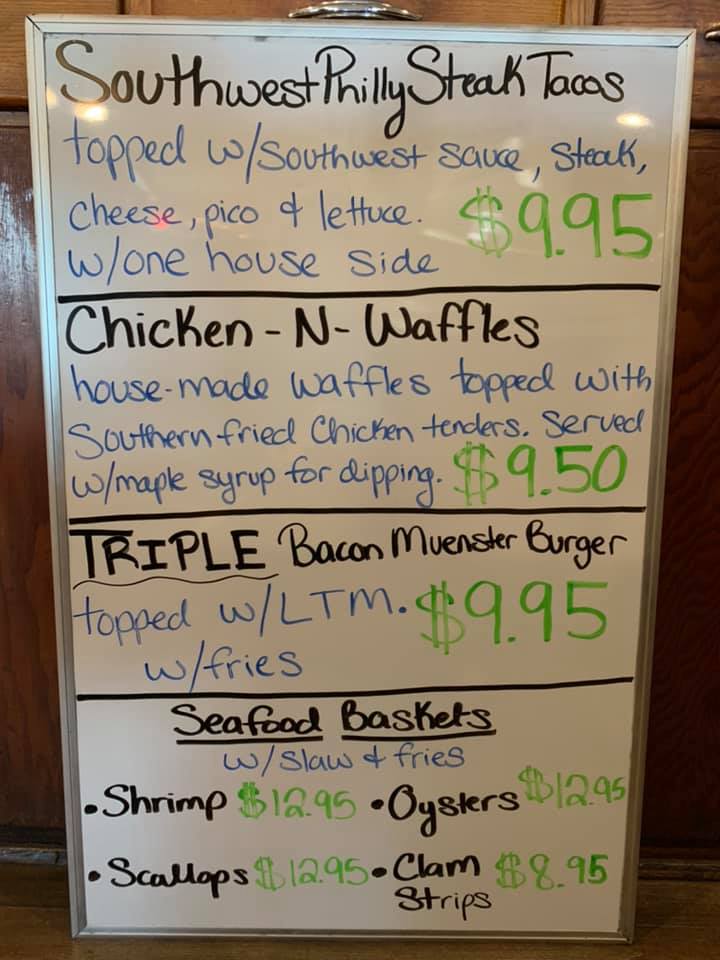 Southwest Philly Steak Tacos
topped w/Southwest sauce, Steak,
Cheese, pico & lettuce. $9.95
w/one house side
Chicken-N-Waffles
house-made Waffles topped with
Southern fried Chicken tenders. Served
w/maple syrup for dipping. $9.50
TRIPLE Bacon Muenster Burger
topped w/LTM. $9.95
w/fries
Seafood Baskets
w/slaw & fries
•Shrimp $12.95 •Oysters $12.95
•Scallops $12.95 •Clam $8.95
Strips